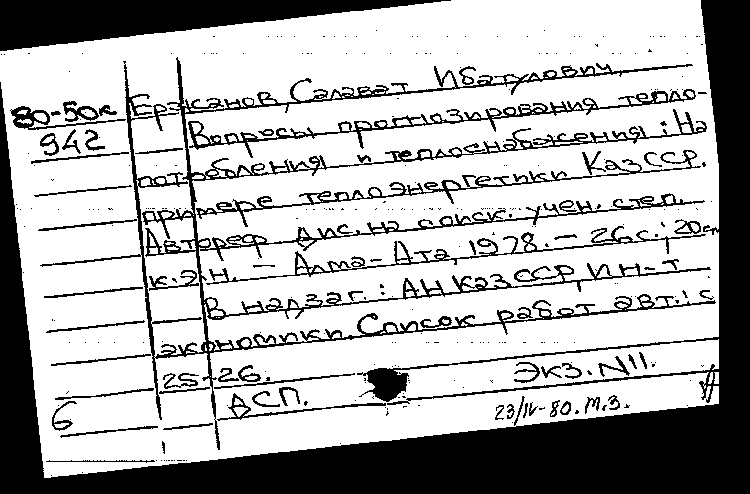 80-50к Ержанов, Салават Ибатулович,
942 Вопросы прогнозирования тепло-
потребления и теплоснабжения: На
примере теплоэнергетики КазССР.
Автореф дис. на соиск. учен. степ.
к.э.н. — Алма-Ата, 1978. — 26с.; 20см
В надзаг.: АН КазССР, Ин-т
экономики. Список работ авт.: с
25-26.
АСП. Экз. N11.
6 23/IV-80. М.З.